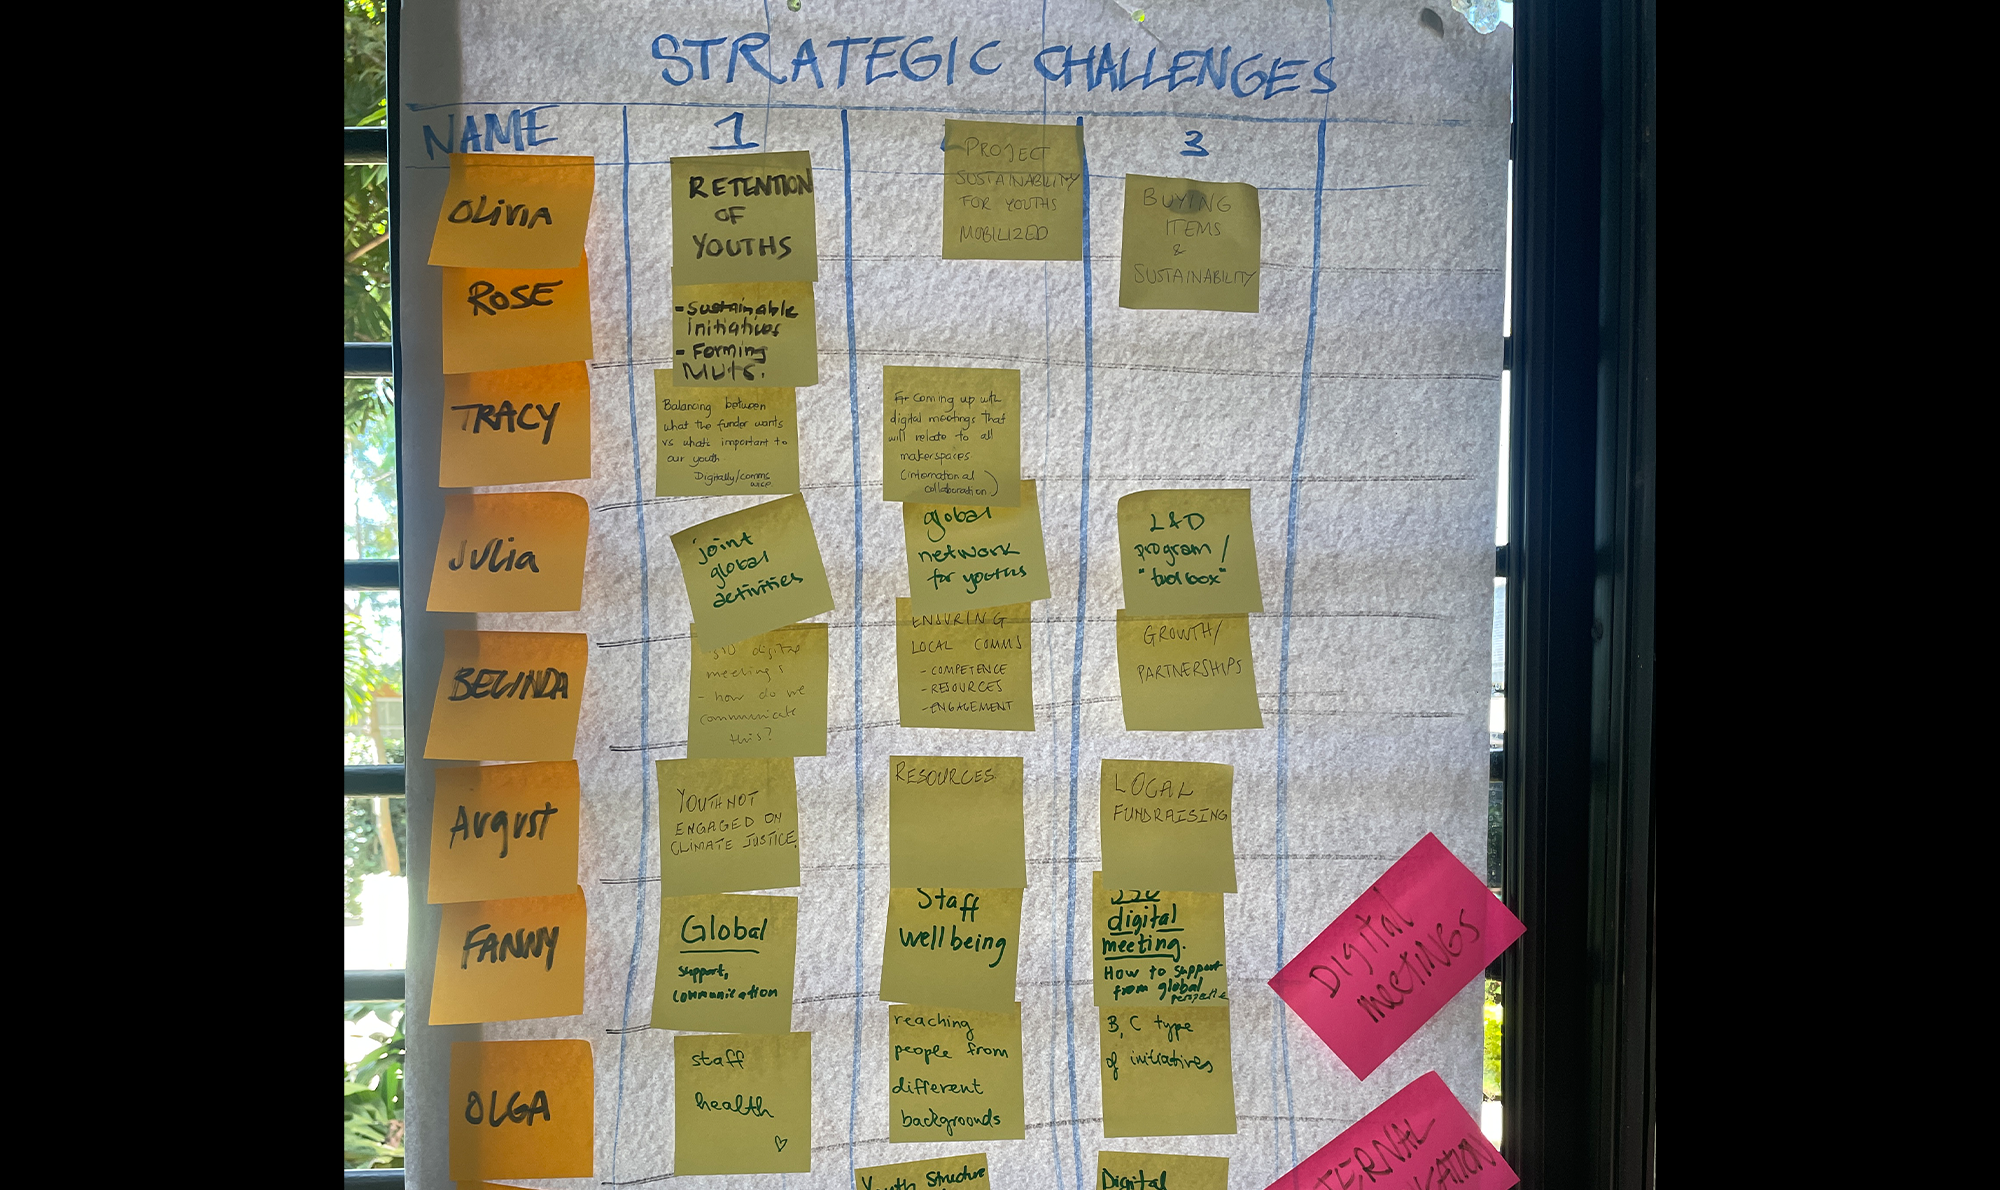 STRATEGIC CHALLENGES
NAME
1
3
OLIVIA
RETENTION
OF
YOUTHS
PROJECT
SUSTAINABILITY
FOR YOUTHS
MOBILIZED
BUYING
ITEMS
&
SUSTAINABILITY
ROSE
- Sustainable
initiatives
- Forming
TRACY
Balancing between
what the funder wants
vs what's important to
our youth
Digitally/comms
wise
Coming up with
digital meetings that
will relate to all
makerspaces
(international
collaboration)
JULIA
joint
global
activities
global
network
for youths
L&D
program /
"toolbox"
BELINDA
digital
meetings
- how do we
communicate
this?
ENSURING
LOCAL COMMS
- COMPETENCE
- RESOURCES
- ENGAGEMENT
GROWTH/
PARTNERSHIPS
August
YOUTH NOT
ENGAGED ON
CLIMATE JUSTICE
RESOURCES
LOCAL
FUNDRAISING
FANNY
Global
support,
communication
Staff
wellbeing
digital
meeting.
How to support
from global
perspective
OLGA
staff
health
reaching
people from
different
backgrounds
B, C type
of initiatives
Youth Structure
Digital
Digital
MEETINGS